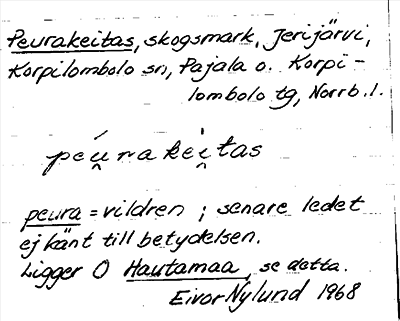 Peurakeitas, skogsmark, Jerijärvi,
Korpilombolo sn, Pajala o. Korpi-
lombolo tg, Norrb. l.
péu̯rakei̯tas
peura = vildren ; senare ledet
ej känt till betydelsen.
Ligger O Hautamaa, se detta.
Eivor Nylund 1968